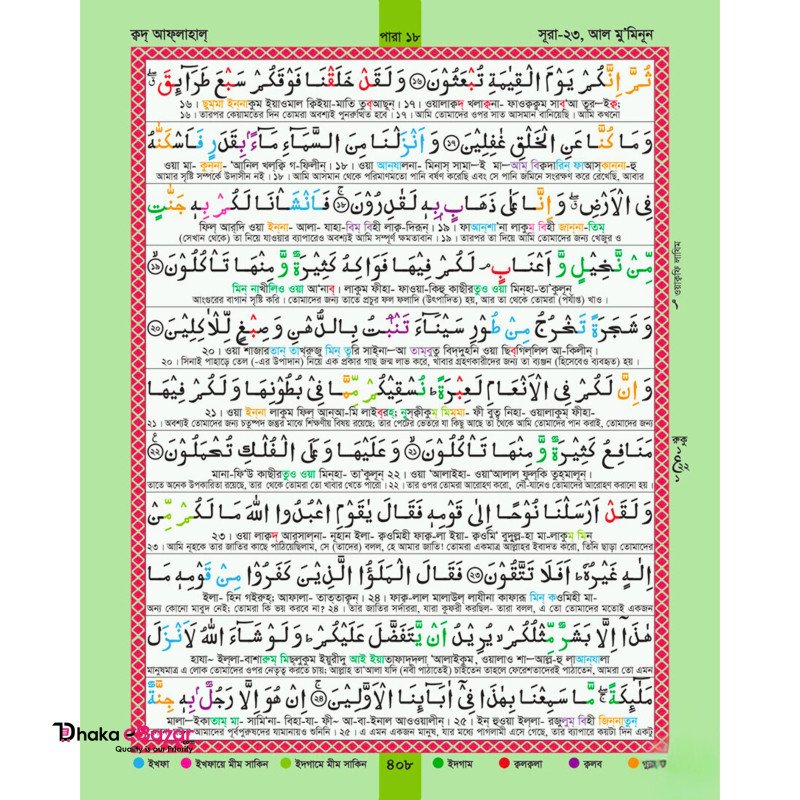 ক্বদ্ আফ্লাহাল্
পারা ১৮
সূরা-২৩, আল মু'মিনূন
ثُمَّ اِنَّكُمْ يَوْمَ الْقِيٰمَةِ تُبْعَثُوْنَ ۝١٦ وَلَقَدْ خَلَقْنَا فَوْقَكُمْ سَبْعَ طَرَآئِقَ
১৬ । ছুম্মা ইননাকুম ইয়াওমাল ক্বিইয়া-মাতি তুব্‌আছূন্ । ১৭ । ওয়ালাক্বদ্ খলাক্বনা- ফাওক্বকুম সাব্'আ ত্বর–ইক্ব;
১৬ । তারপর কেয়ামতের দিন তোমরা অবশ্যই পুনরুত্থিত হবে । ১৭ । আমি তোমাদের ওপর সাত আসমান বানিয়েছি । আমি কখনো
وَمَا كُنَّا عَنِ الْخَلْقِ غٰفِلِيْنَ ۝١٧ وَاَنْزَلْنَا مِنَ السَّمَآءِ مَآءًۢ بِقَدَرٍ فَاَسْكَنّٰهُ
ওয়া মা- কুননা- 'আনিল খলক্বি গ-ফিলীন্ । ১৮ । ওয়া আনযালনা- মিনাস্ সামা–ই মা–আম বিক্বদারিন ফাআস্‌কাননা-হু
আমার সৃষ্টি সম্পর্কে উদাসীন নই । ১৮ । আমি আসমান থেকে পরিমাণমতো পানি বর্ষণ করেছি এবং সে পানি জমিনে সংরক্ষণ করে রেখেছি, আবার
فِى الْاَرْضِ ۖ وَاِنَّا عَلٰى ذَهَابٍۢ بِهٖ لَقٰدِرُوْنَ ۝١٨ فَاَنْشَاْنَا لَكُمْ بِهٖ جَنّٰتٍ
ফিল্ আর্‌দি ওয়া ইননা- আলা- যাহা-বিম্ বিহী লাক্ব-দিরূন্ । ১৯ । ফাআন্‌শা'না লাকুম্ বিহী জাননা-তিম্
(সেখান থেকে) তা নিয়ে যাওয়ার ব্যাপারেও অবশ্যই আমি সম্পূর্ণ ক্ষমতাবান । ১৯ । তারপর তা দিয়ে আমি তোমাদের জন্য খেজুর ও
مِّنْ نَّخِيْلٍ وَّاَعْنَابٍ ۘ لَكُمْ فِيْهَا فَوَاكِهُ كَثِيْرَةٌ وَّمِنْهَا تَاْكُلُوْنَ ۝١٩
ওয়াক্বফি লাযিম
মিন্ নাখীলিও ওয়া আ'নাব্ । লাকুম ফীহা- ফাওয়া-কিহু কাছীরতুও ওয়া মিন্‌হা-তা'কুলূন্
আংগুরের বাগান সৃষ্টি করি । তোমাদের জন্যে তাতে প্রচুর ফল ফলাদি (উৎপাদিত) হয়, আর তা থেকে তোমরা (পর্যাপ্ত) খাও ।
وَشَجَرَةً تَخْرُجُ مِنْ طُوْرِ سَيْنَآءَ تَنْۢبُتُ بِالدُّهْنِ وَصِبْغٍ لِّلْاٰكِلِيْنَ ۝٢٠
২০ । ওয়া শাজারতান্ তাখ্‌রুজু মিন্ তূরি সাইনা–আ তামবুতু বিদ্দুহনি ওয়া ছিব্‌গিল্লিল আ-কিলীন্ ।
২০ । সিনাই পাহাড়ে তেল (-এর উপাদান) নিয়ে এক প্রকার গাছ জন্ম লাভ করে, খাবার গ্রহণকারীদের জন্য তা ব্যঞ্জন (হিসেবেও ব্যবহৃত) হয় ।
وَاِنَّ لَكُمْ فِى الْاَنْعَامِ لَعِبْرَةً ؕ نُسْقِيْكُمْ مِّمَّا فِىْ بُطُوْنِهَا وَلَكُمْ فِيْهَا
২১ । ওয়া ইননা লাকুম ফিল্ আন্‌আ-মি লাইব্‌রহ্; নুস্‌ক্বীকুম্ মিম্‌মা- ফী বুতূ নিহা- ওয়ালাকুম্ ফীহা-
২১ । অবশ্যই তোমাদের জন্য চতুষ্পদ জন্তুর মাঝে শিক্ষণীয় বিষয় রয়েছে; তার পেটের ভেতরে যা কিছু আছে তা থেকে আমি তোমাদের পান করাই, তোমাদের জন্য
مَنَافِعُ كَثِيْرَةٌ وَّمِنْهَا تَاْكُلُوْنَ ۝٢١ وَعَلَيْهَا وَعَلَى الْفُلْكِ تُحْمَلُوْنَ ۝٢٢
রুকু
মানা-ফি'উ কাছীরতুও ওয়া মিন্‌হা- তা'কুলূন্ ২২ । ওয়া 'আলাইহা- ওয়া'আলাল ফুল্‌কি তুহ্‌মালূন্ ।
তাতে অনেক উপকারিতা রয়েছে, তার থেকে তোমরা তো খাবার খেতে পারো । ২২ । তার ওপর তোমরা আরোহণ করো, নৌ-যানেও তোমাদের আরোহণ করানো হয় ।
وَلَقَدْ اَرْسَلْنَا نُوْحًا اِلٰى قَوْمِهٖ فَقَالَ يٰقَوْمِ اعْبُدُوا اللّٰهَ مَا لَكُمْ مِّنْ
২৩ । ওয়া লাক্বদ্ আর্‌সাল্‌না- নূহান ইলা- ক্বওমিহী ফাক্ব-লা ইয়া- ক্বওমি' বুদুল্ল-হা মা-লাকুম্ মিন্
২৩ । আমি নূহকে তার জাতির কাছে পাঠিয়েছিলাম, সে (তাদের) বলল, হে আমার জাতি! তোমরা একমাত্র আল্লাহর ইবাদত করো, তিনি ছাড়া তোমাদের
اِلٰهٍ غَيْرُهٗ ؕ اَفَلَا تَتَّقُوْنَ ۝٢٣ فَقَالَ الْمَلَؤُا الَّذِيْنَ كَفَرُوْا مِنْ قَوْمِهٖ مَا
ইলা- হিন গইরুহ্; আফালা- তাত্তাক্বূন্ । ২৪ । ফাক্ব-লাল মালাউল্ লাযীনা কাফারূ মিন্ কওমিহী মা-
অন্য কোনো মাবুদ নেই; তোমরা কি ভয় করবে না? ২৪ । তার জাতির সর্দাররা, যারা কুফরী করছিল- তারা বলল, এ তো তোমাদের মতোই একজন
هٰذَآ اِلَّا بَشَرٌ مِّثْلُكُمْ ۙ يُرِيْدُ اَنْ يَّتَفَضَّلَ عَلَيْكُمْ ؕ وَلَوْ شَآءَ اللّٰهُ لَاَنْزَلَ
হাযা– ইল্‌লা-বাশারুম্ মিছ্‌লুকুম্ ইয়ুরীদু আই ইয়াতাফাদ্‌দ্বলা 'আলাইকুম্, ওয়ালাও শা–আল্ল-হু লাআন্‌যালা
মানুষমাত্র এ লোক তোমাদের ওপর নেতৃত্ব করতে চায়; আল্লাহ তা'আলা যদি (নবী পাঠাতেই) চাইতেন তাহলে ফেরেশতাদেরই পাঠাতেন, আমরা তো এমন
مَلٰٓئِكَةً ۖۚ مَّا سَمِعْنَا بِهٰذَا فِىْٓ اٰبَآئِنَا الْاَوَّلِيْنَ ۝٢٤ اِنْ هُوَ اِلَّا رَجُلٌۢ بِهٖ جِنَّةٌ
মালা–ইকাতাম্ মা- সামি'না- বিহা-যা- ফী– আ-বা-ইনাল আওওয়ালীন্ । ২৫ । ইন্ হুওয়া ইল্‌লা- রজুলুম্ বিহী জিননাতুন্
আমাদের পূর্বপুরুষদের যামানায়ও শুনিনি । ২৫ । এ এমন একজন মানুষ, যার মধ্যে পাগলামী এসে গেছে, তার ব্যাপারে কয়টা দিন একটু
Dhaka eBazar
Quality is our Priority
ইখফা
ইখফায়ে মীম সাকিন
ইদগামে মীম সাকিন
৪০৮
ইদগাম
ক্বলক্বলা
ক্বলব